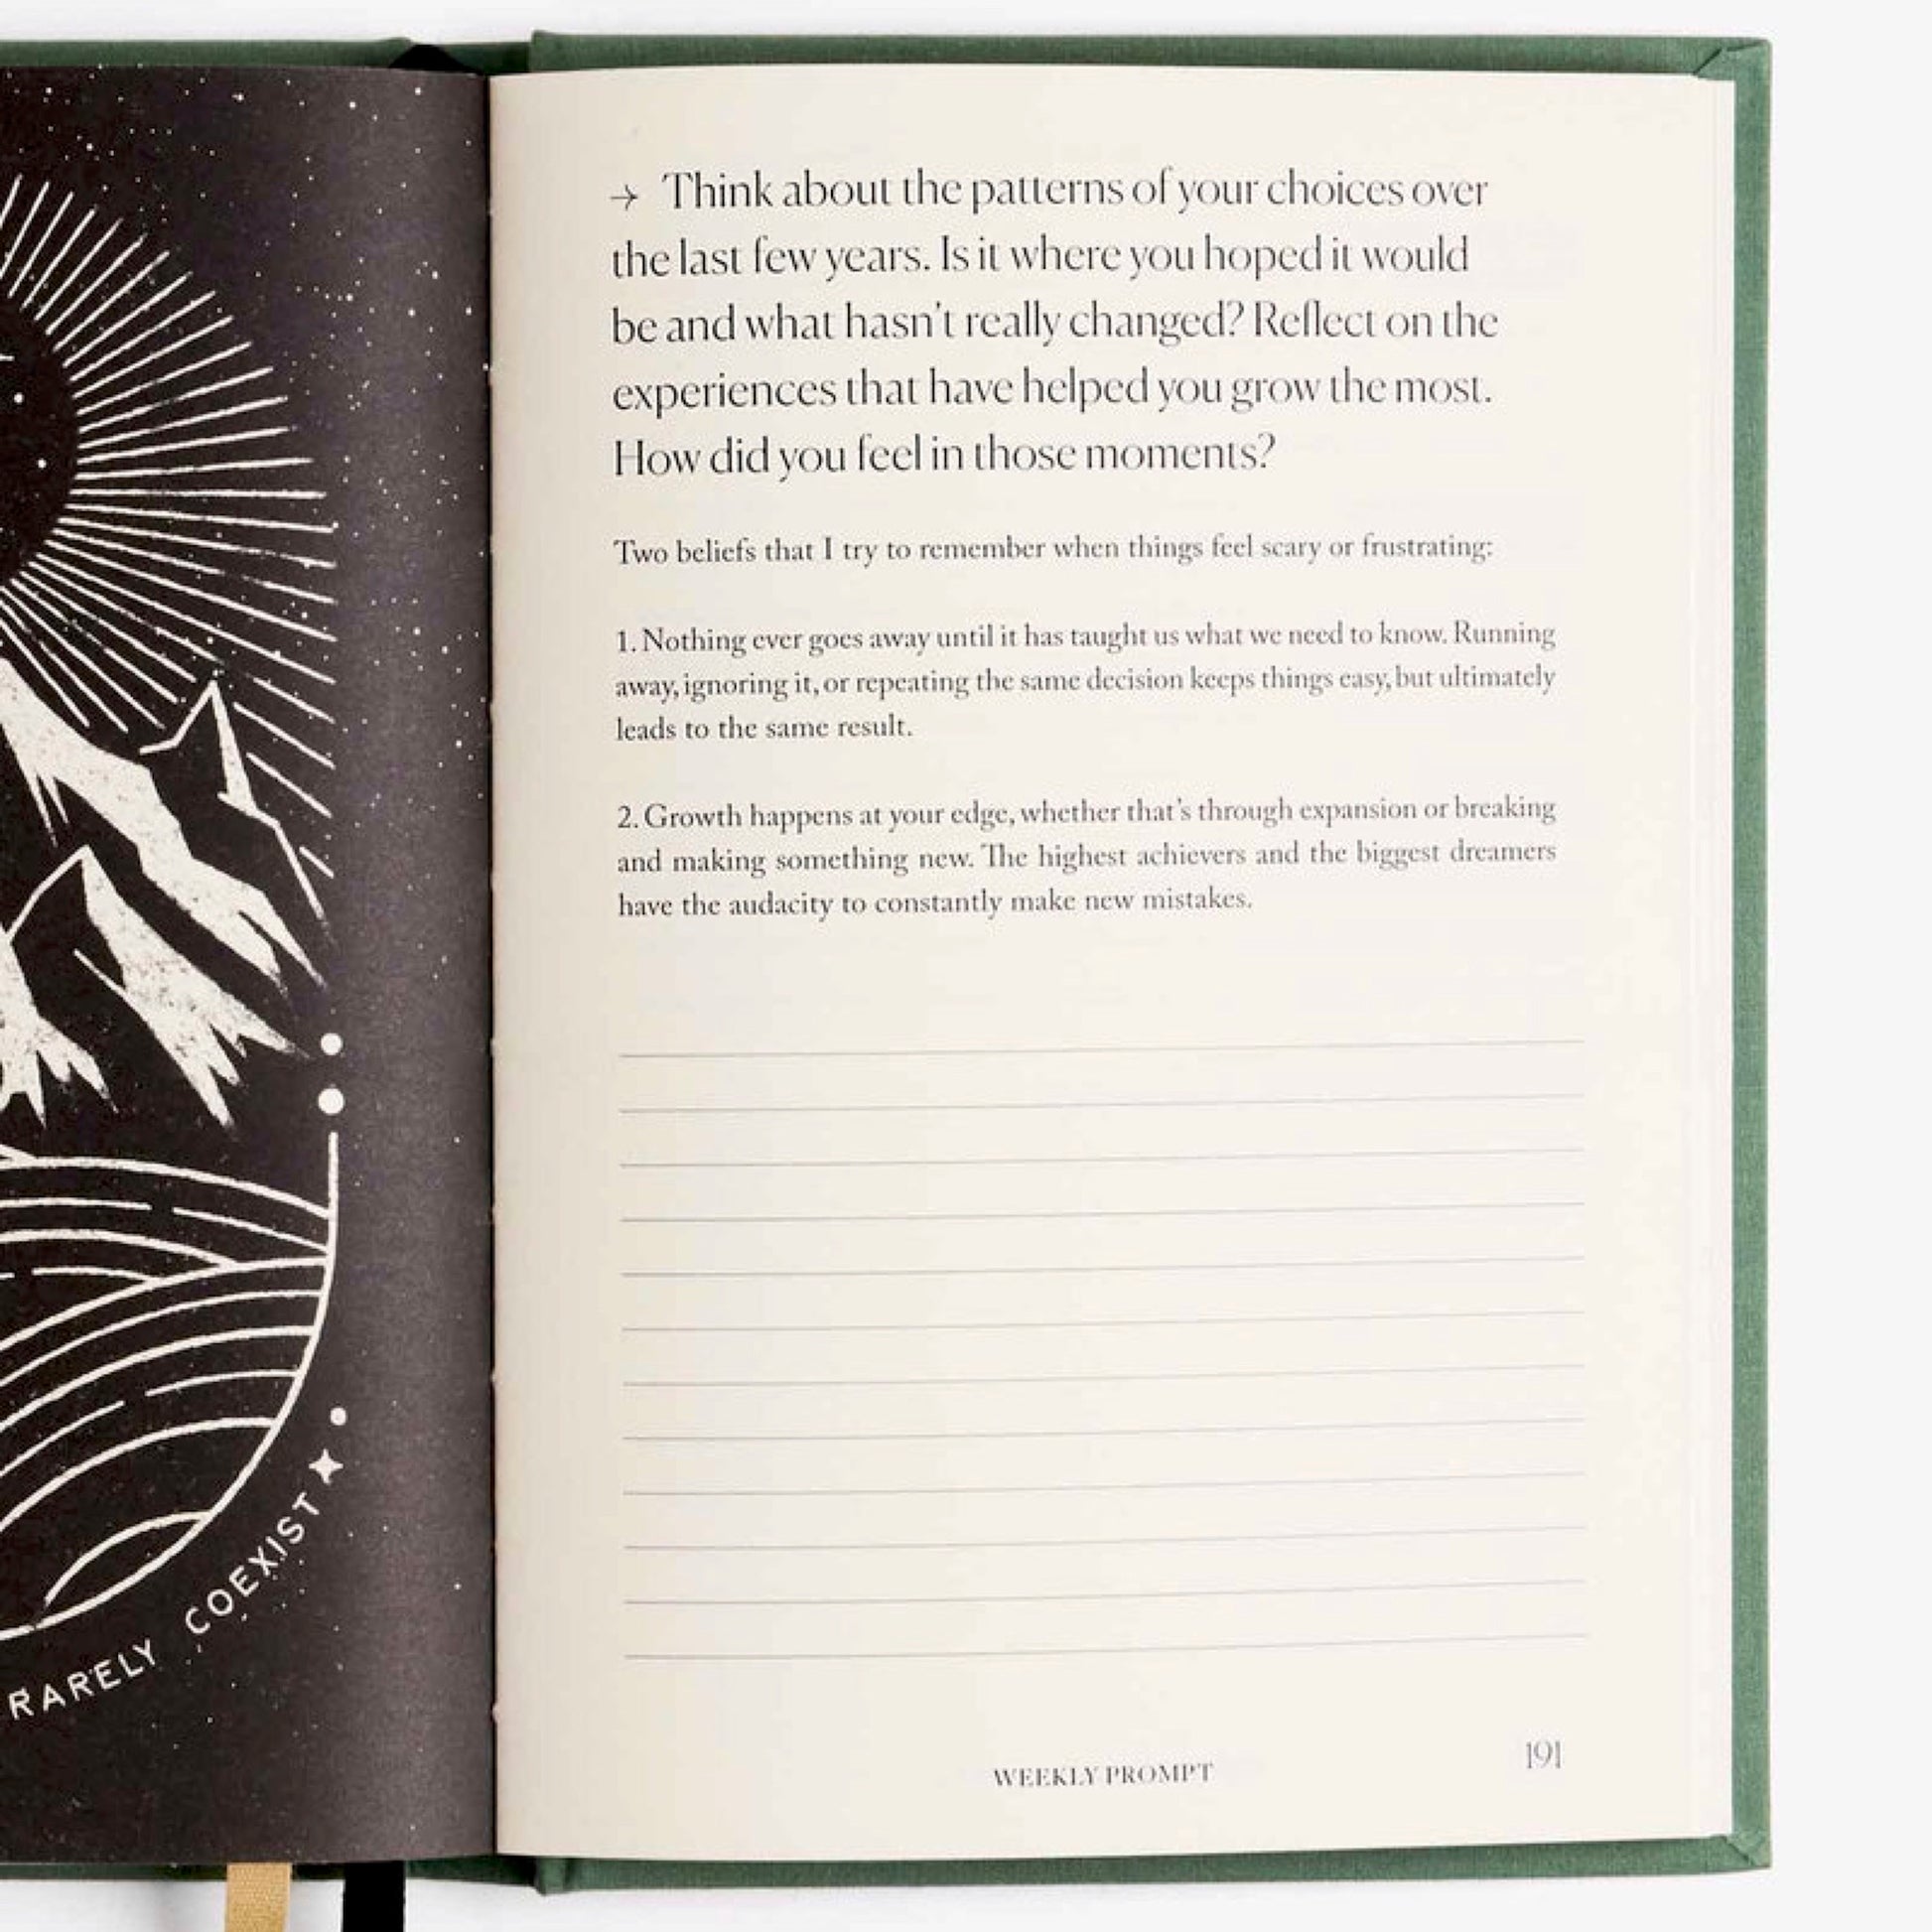 → Think about the patterns of your choices over
the last few years. Is it where you hoped it would
be and what hasn't really changed? Reflect on the
experiences that have helped you grow the most.
How did you feel in those moments?
Two beliefs that I try to remember when things feel scary or frustrating:
1. Nothing ever goes away until it has taught us what we need to know. Running
away, ignoring it, or repeating the same decision keeps things easy, but ultimately
leads to the same result.
2. Growth happens at your edge, whether that's through expansion or breaking
and making something new. The highest achievers and the biggest dreamers
have the audacity to constantly make new mistakes.
WEEKLY PROMPT
191
RARELY COEXIST